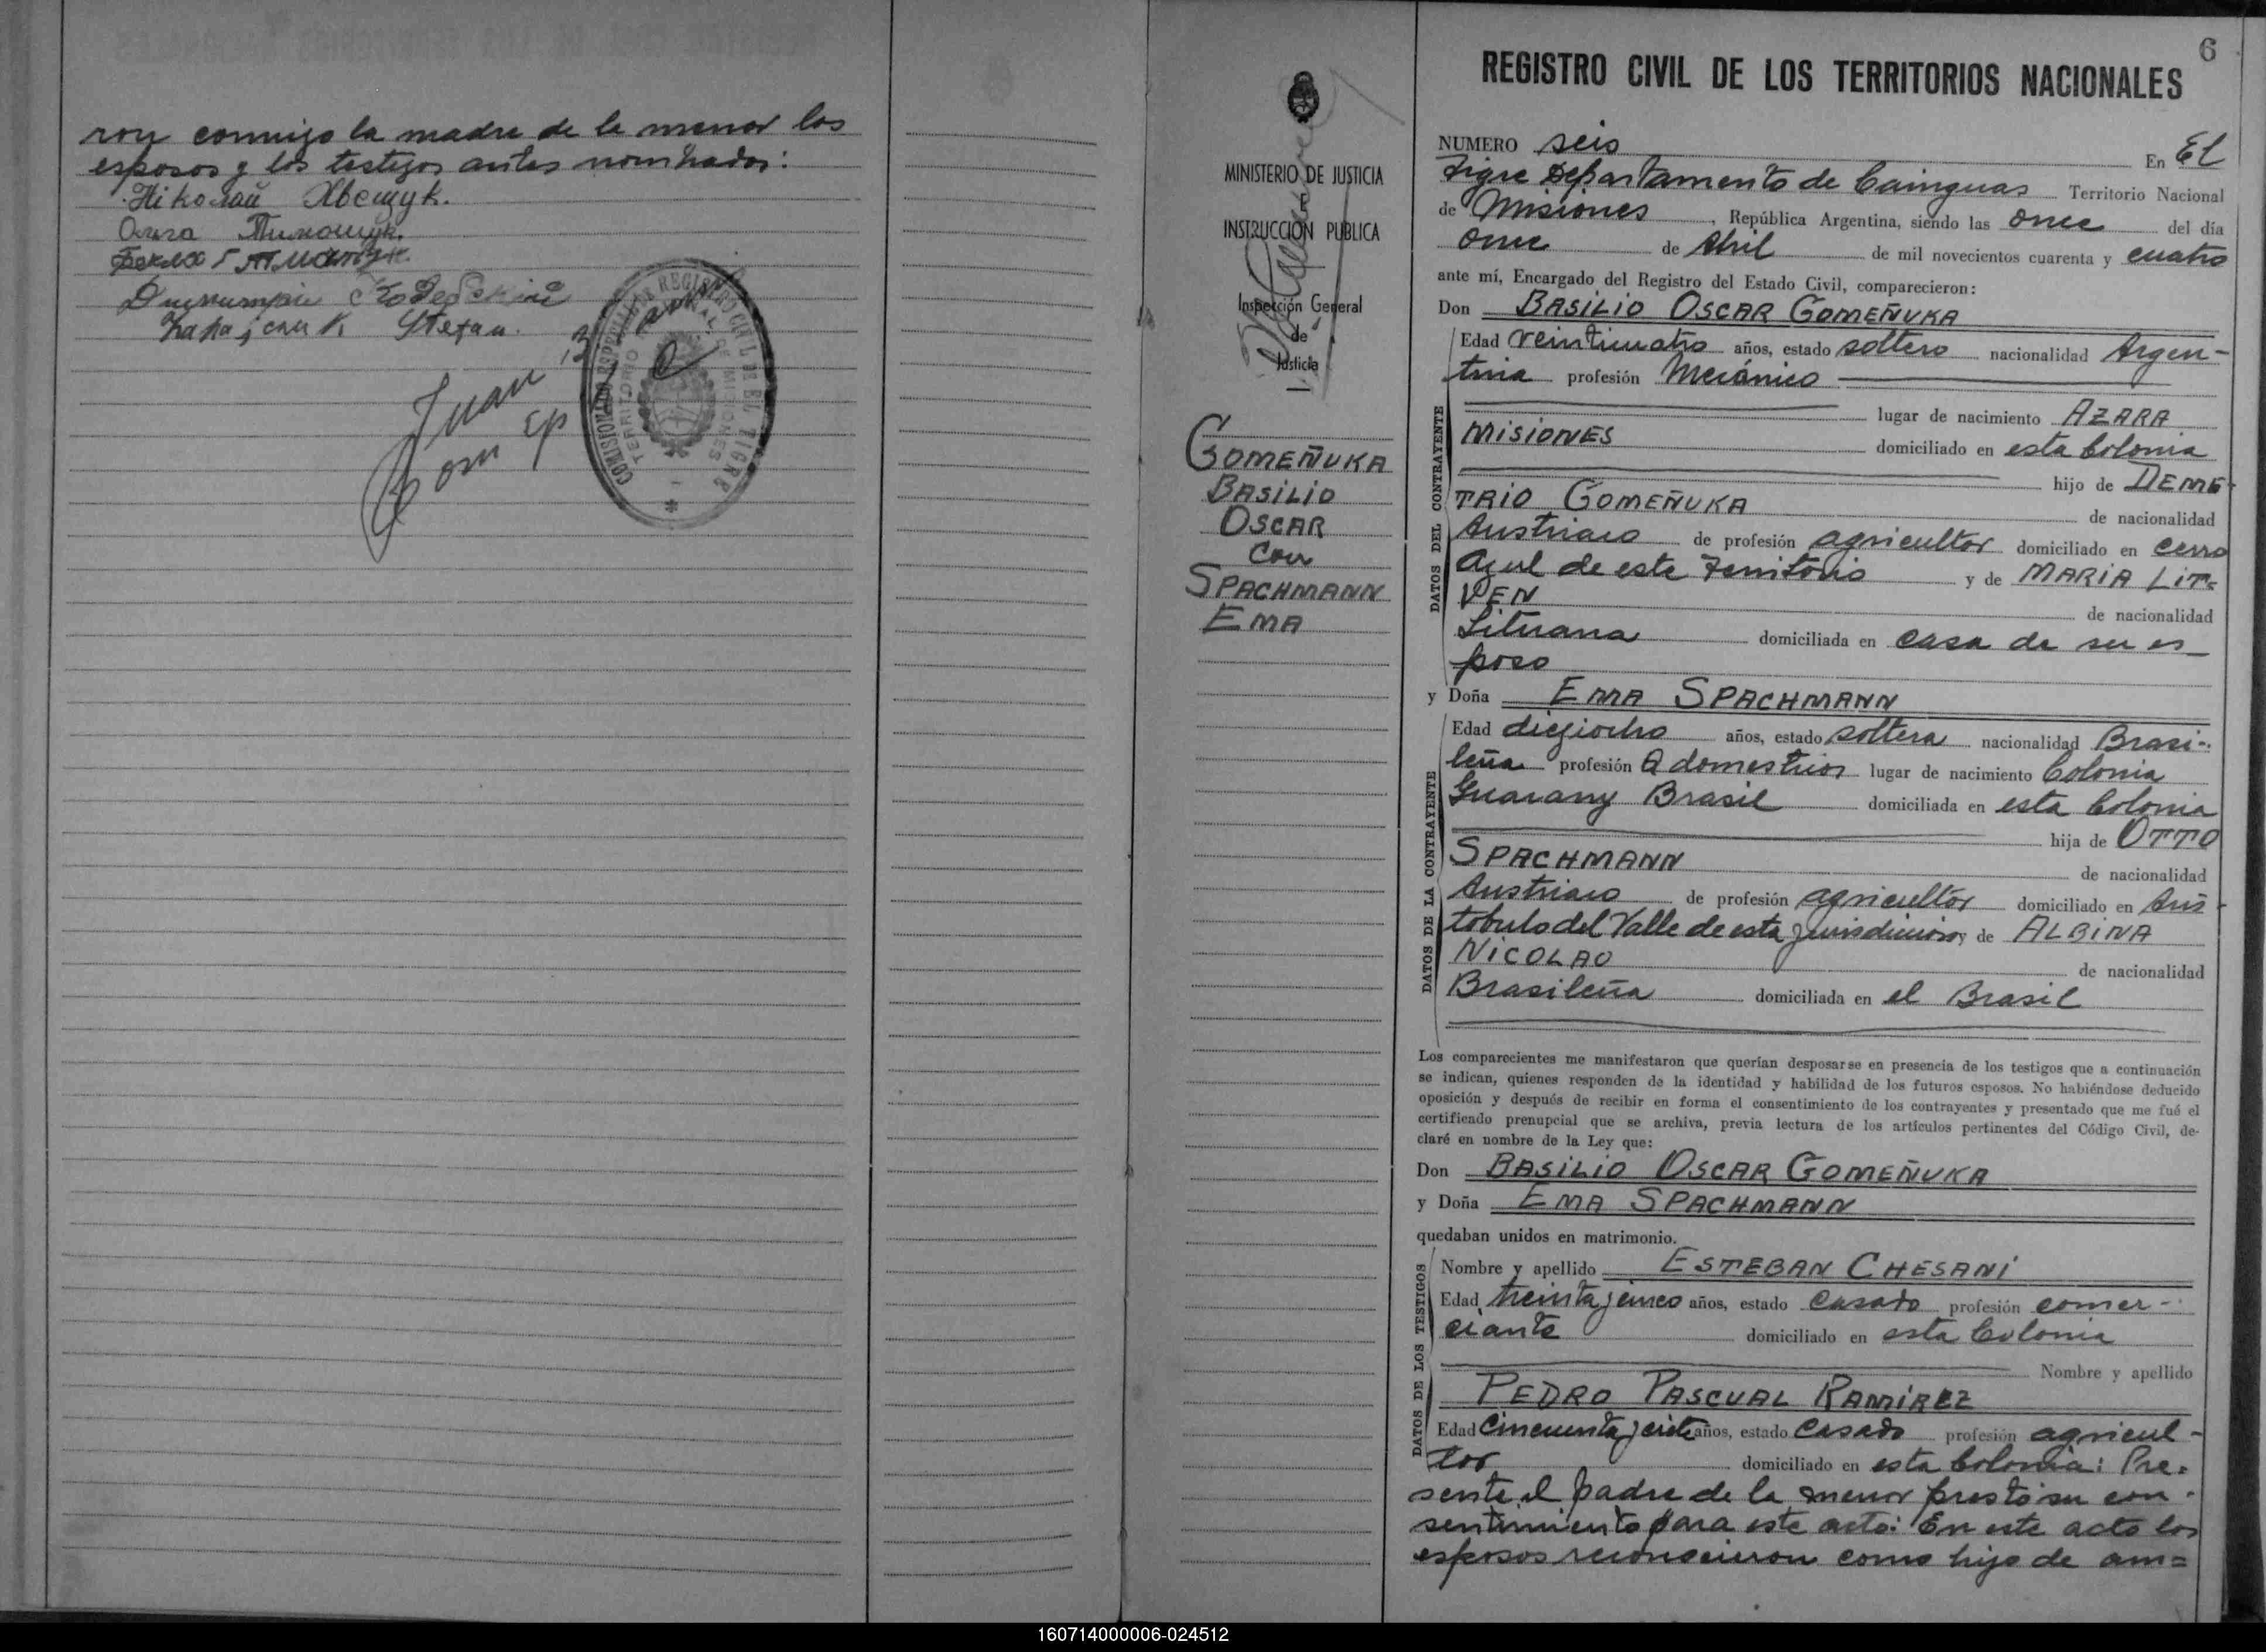 ron conmigo la madre de la menor los
esposos y los testigos antes nombrados:
Ніколай Хвещук.
Ольга Тимощук.
Стефан.
Juan
COMISIONADO ESPECIAL DE REGISTRO CIVIL DE EL TIGRE
TERRITORIO NACIONAL DE MISIONES
MINISTERIO DE JUSTICIA
E
INSTRUCCIÓN PUBLICA
Inspección General
de
Justicia
GOMEÑUKA
BASILIO
OSCAR
con
SPACHMANN
EMA
6
REGISTRO CIVIL DE LOS TERRITORIOS NACIONALES
NUMERO seis En El
Tigre Departamento de Cainguas Territorio Nacional
de Misiones, República Argentina, siendo las once del día
once de Abril de mil novecientos cuarenta y cuatro
ante mí, Encargado del Registro del Estado Civil, comparecieron:
Don BASILIO OSCAR GOMEÑUKA
DATOS DEL CONTRAYENTE
Edad veinticuatro años, estado soltero nacionalidad Argen-
tina profesión Mecánico
lugar de nacimiento AZARA
MISIONES domiciliado en esta Colonia
hijo de DEME-
TRIO GOMEÑUKA de nacionalidad
Austriaco de profesión agricultor domiciliado en Cerro
Azul de este Territorio y de MARIA LIT=
VEN de nacionalidad
Lituana domiciliada en casa de su es-
poso
y Doña EMA SPACHMANN
DATOS DE LA CONTRAYENTE
Edad dieziocho años, estado soltera nacionalidad Brasi-
leña profesión Q domesticos lugar de nacimiento Colonia
Guarany Brasil domiciliada en esta Colonia
hija de OTTO
SPACHMANN de nacionalidad
Austriaco de profesión agricultor domiciliado en Aris-
tobulo del Valle de esta jurisdiccion y de ALBINA
NICOLAO de nacionalidad
Brasileña domiciliada en el Brasil
Los comparecientes me manifestaron que querían desposarse en presencia de los testigos que a continuación
se indican, quienes responden de la identidad y habilidad de los futuros esposos. No habiéndose deducido
oposición y después de recibir en forma el consentimiento de los contrayentes y presentado que me fué el
certificado prenupcial que se archiva, previa lectura de los artículos pertinentes del Código Civil, de-
claré en nombre de la Ley que:
Don BASILIO OSCAR GOMEÑUKA
y Doña EMA SPACHMANN
quedaban unidos en matrimonio.
DATOS DE LOS TESTIGOS
Nombre y apellido ESTEBAN CHESANI
Edad treinta y cinco años, estado casado profesión comer-
ciante domiciliado en esta Colonia
Nombre y apellido
PEDRO PASCUAL RAMIREZ
Edad cincuenta y siete años, estado casado profesión agricul-
tor domiciliado en esta Colonia: Pre=
sente el padre de la menor prestó su con-
sentimiento para este acto: En este acto los
esposos reconocieron como hijo de am=
160714000006-024512